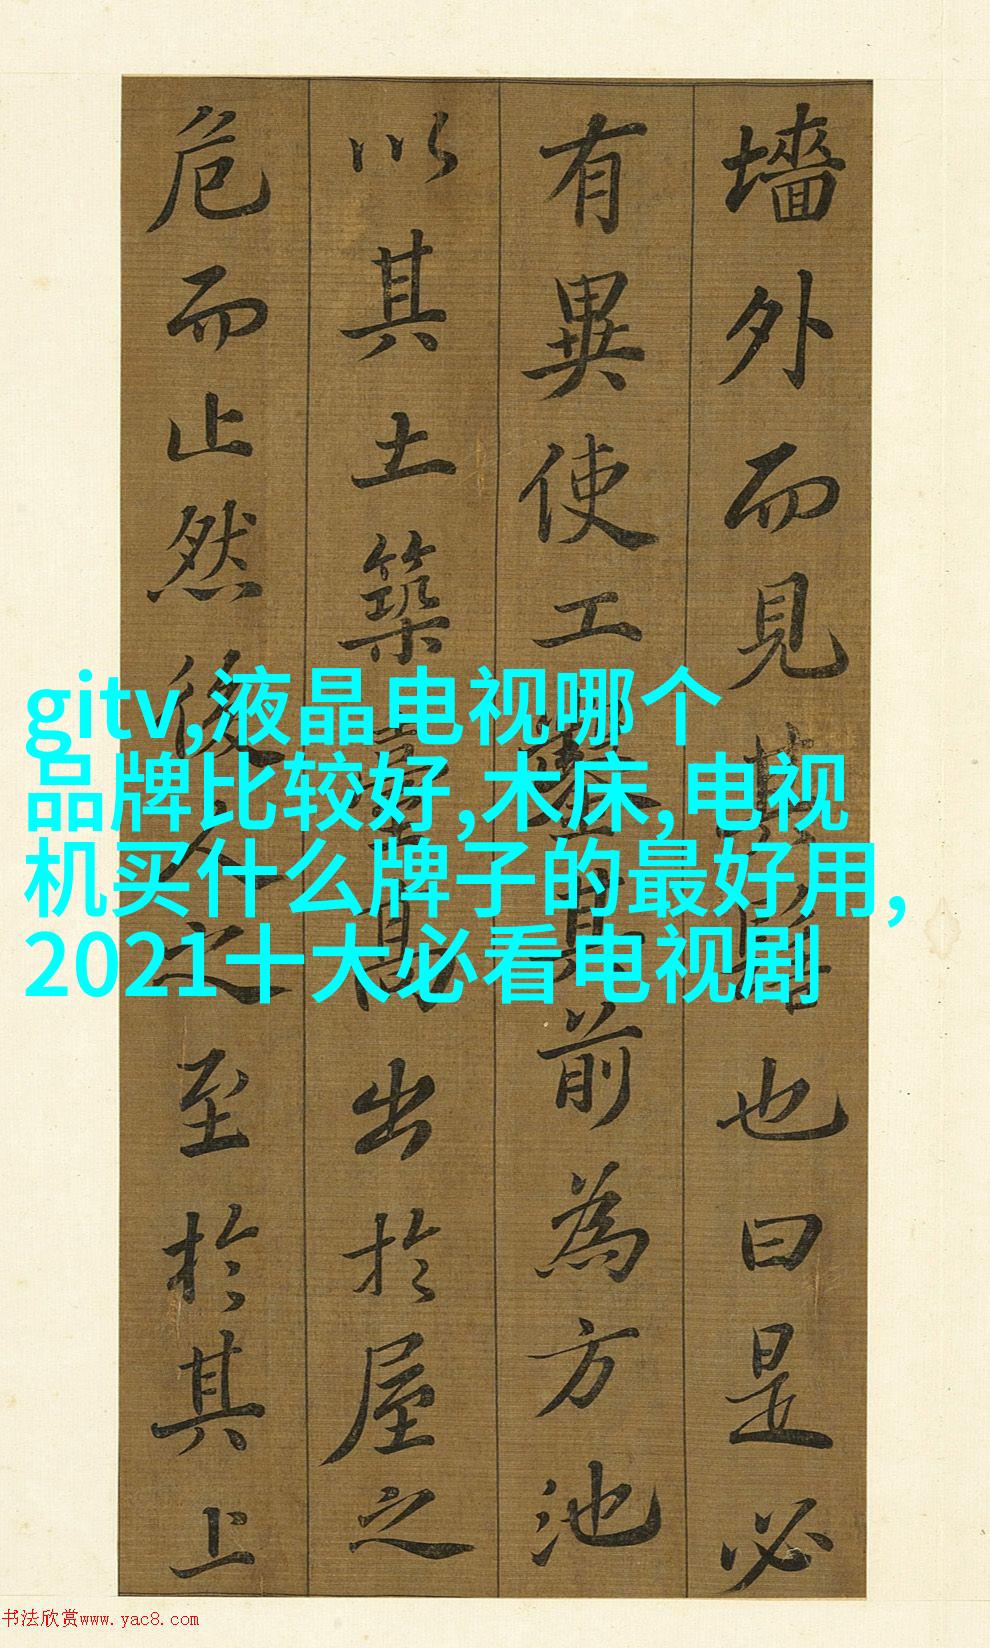 墻外而見其髻也曰是必
有異使工鑿其前為方池
以其土築臺高出於屋之
危而止然後人之至於其上
gitv,液晶电视哪个
品牌比较好,木床,电视
机买什么牌子的最好用,
2021十大必看电视剧
书法欣赏www.yac8.com